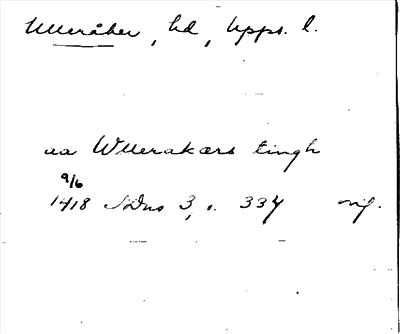 Ulleråker, hd, Upps. l.
aa Wllerakærs tingh
9/6
1418 SDns 3, s. 337 orig.